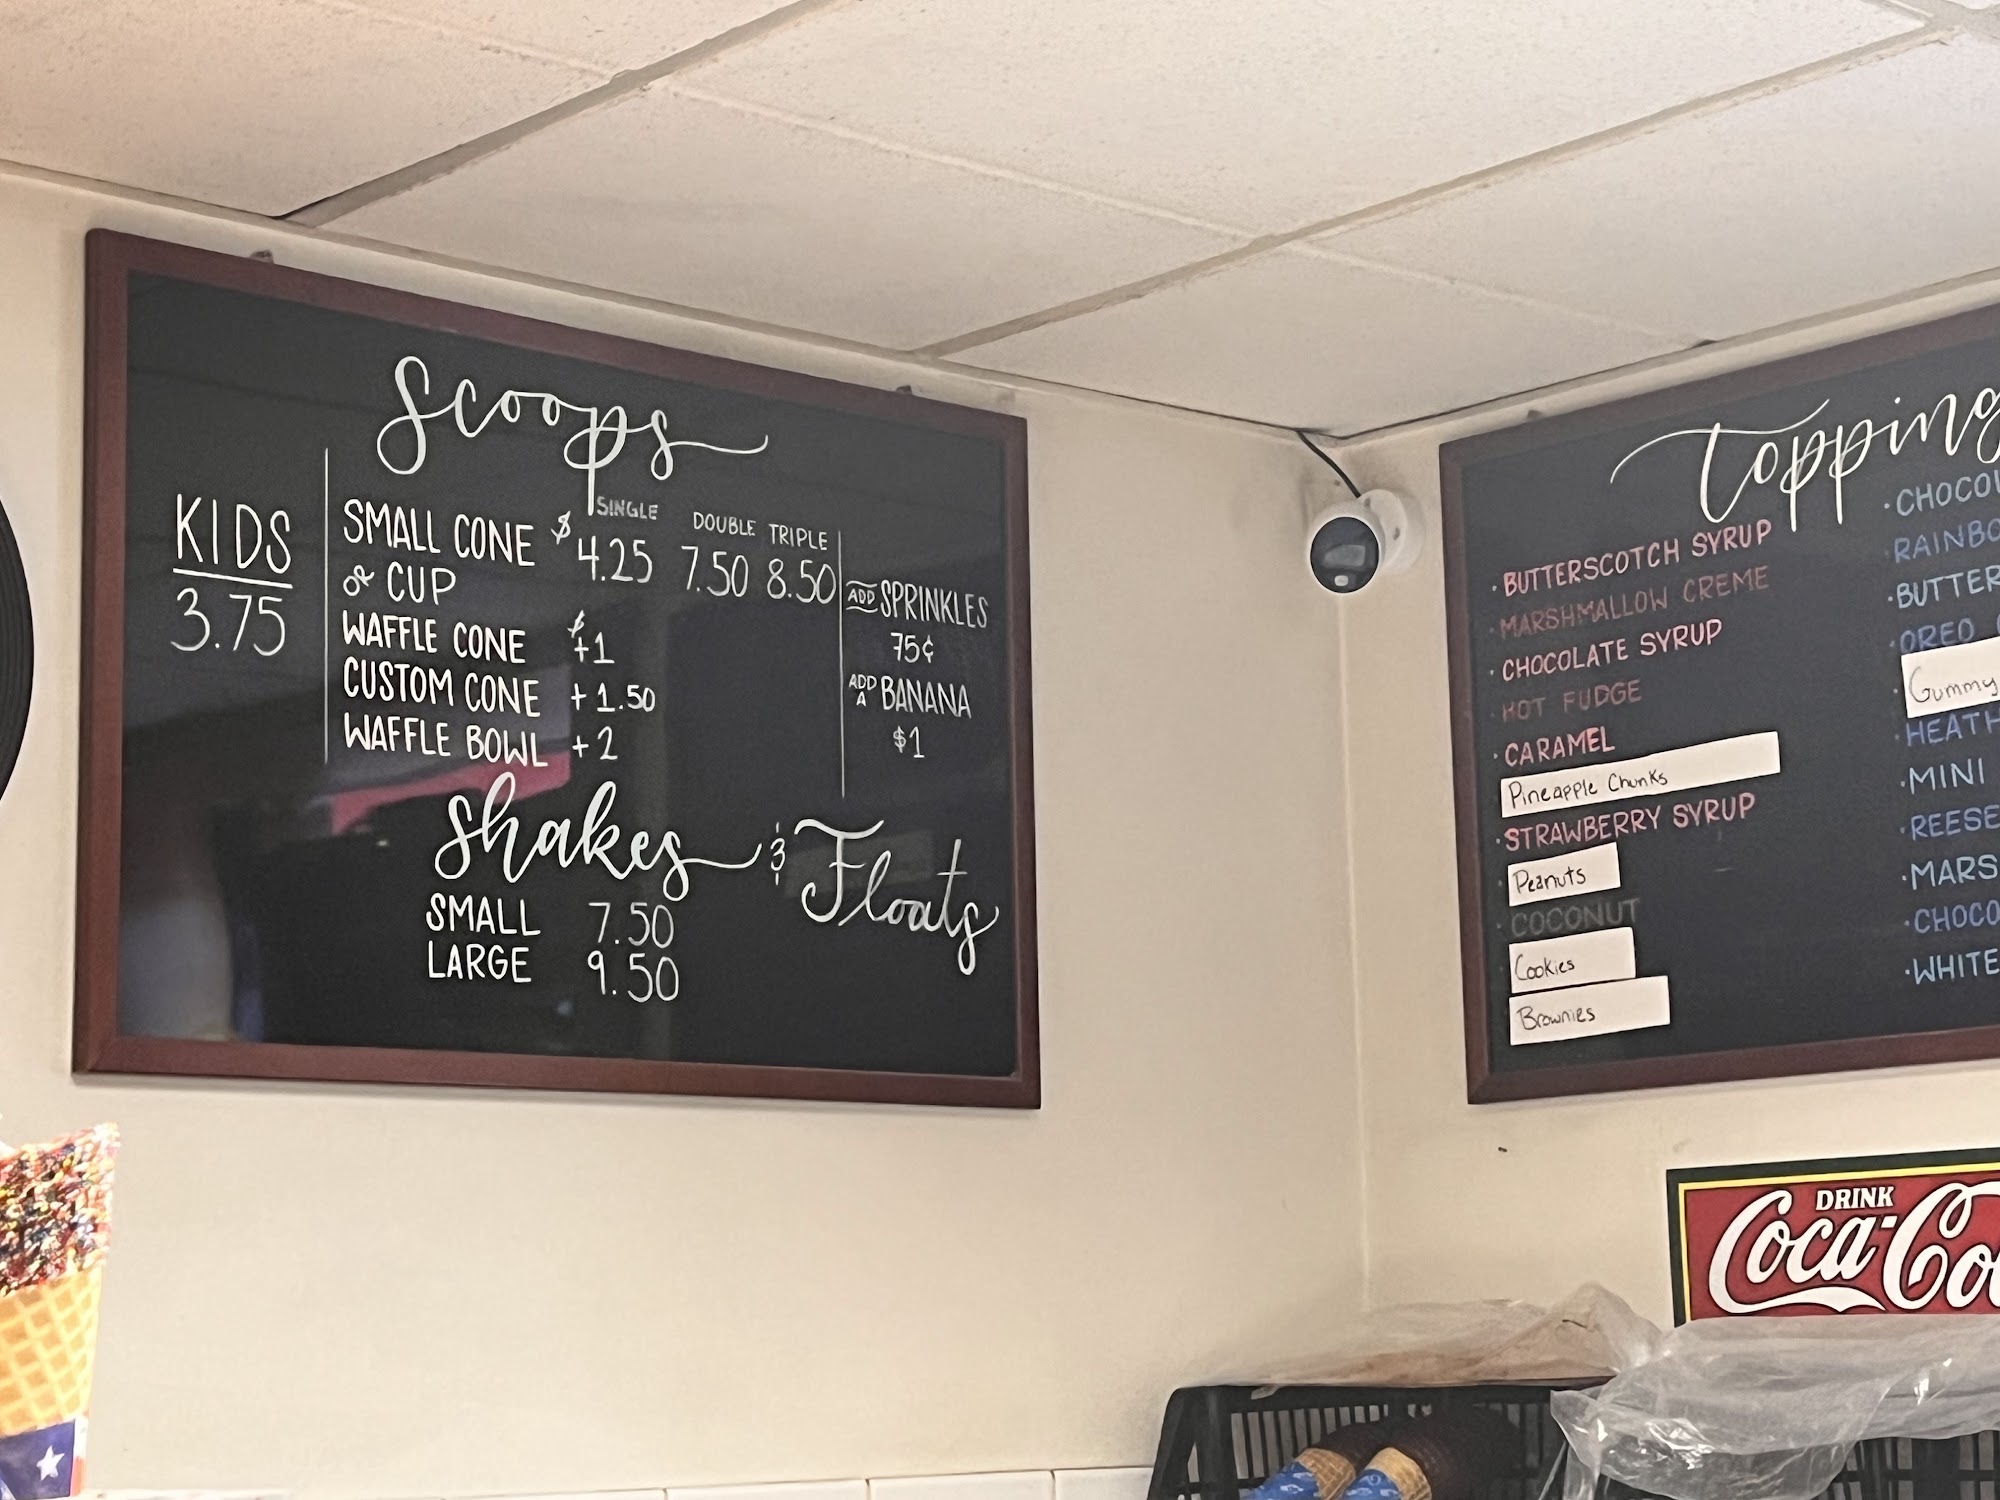 Scoops
KIDS
3.75
SINGLE DOUBLE TRIPLE
SMALL CONE $ 4.25 7.50 8.50
OR CUP
WAFFLE CONE $ +1
CUSTOM CONE +1.50
WAFFLE BOWL +2
ADD SPRINKLES
75¢
ADD A BANANA
$1
Shakes & Floats
SMALL 7.50
LARGE 9.50
Topping
· BUTTERSCOTCH SYRUP
· MARSHMALLOW CREME
· CHOCOLATE SYRUP
· HOT FUDGE
· CARAMEL
Pineapple Chunks
· STRAWBERRY SYRUP
Peanuts
· COCONUT
Cookies
Brownies
· CHOCO
· RAINBO
· BUTTER
· OREO
Gummy
· HEATH
· MINI
· REESE
· MARS
· CHOCO
· WHITE
DRINK
Coca-Col